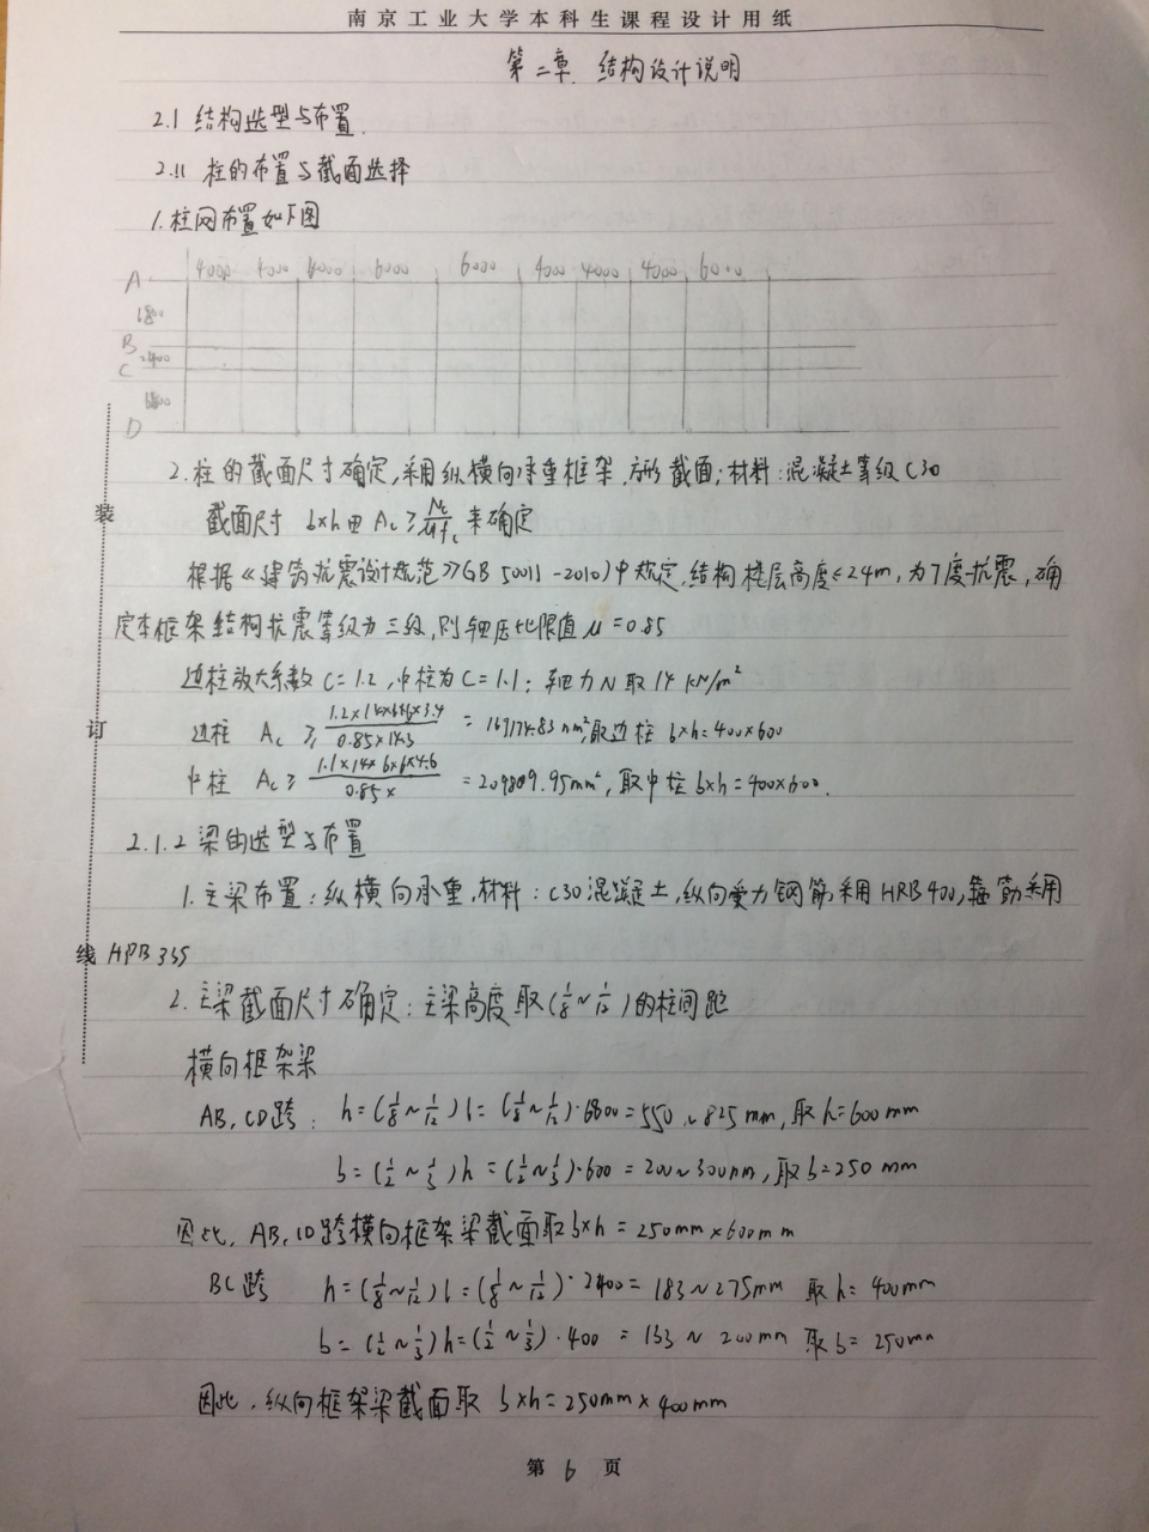 南京工业大学本科生课程设计用纸
第二章. 结构设计说明
2.1 结构选型与布置.
2.11 柱的布置与截面选择
1.柱网布置如下图
4000 4000 6000 6000 6000 4000 4000 4000 6000
A
6800
B
2400
C
6800
D
2.柱的截面尺寸确定,采用纵横向承重框架.方形截面;材料:混凝土等级C30
截面尺寸 b×h由 Ac≥Nc/μfc 来确定
根据《建筑抗震设计规范》GB 50011-2010)中规定,结构楼层高度≤24m,为7度抗震,确
定本框架结构抗震等级为三级,则轴压比限值μ=0.85
边柱放大系数C=1.2,中柱为C=1.1;轴力N取14 kN/m²
边柱 Ac ≥ = 169174.83 mm²,取边柱 b×h=400×600
中柱 Ac ≥ 1.1×14×6×6×4.6/0.85× =209809.95mm²,取中柱b×h=400×600.
2.1.2 梁的选型与布置
1.主梁布置:纵横向承重,材料:C30混凝土,纵向受力钢筋采用HRB400,箍筋采用
HPB335
2.主梁截面尺寸确定:主梁高度取(1/8~1/12)的柱间距
横向框架梁
AB,CD跨: h=(1/8~1/12)l=(1/8~1/12)·6800=550~825mm,取h=600mm
b=(1/2~1/3)h=(1/2~1/3)·600=200~300mm,取b=250mm
因此,AB,CD跨横向框架梁截面取b×h=250mm×600mm
BC跨 h=(1/8~1/12)l=(1/8~1/12)·2400=183~275mm 取h=400mm
b=(1/2~1/3)h=(1/2~1/3)·400=133~200mm 取b=250mm
因此,纵向框架梁截面取 b×h=250mm×400mm
装
订
线
第 6 页